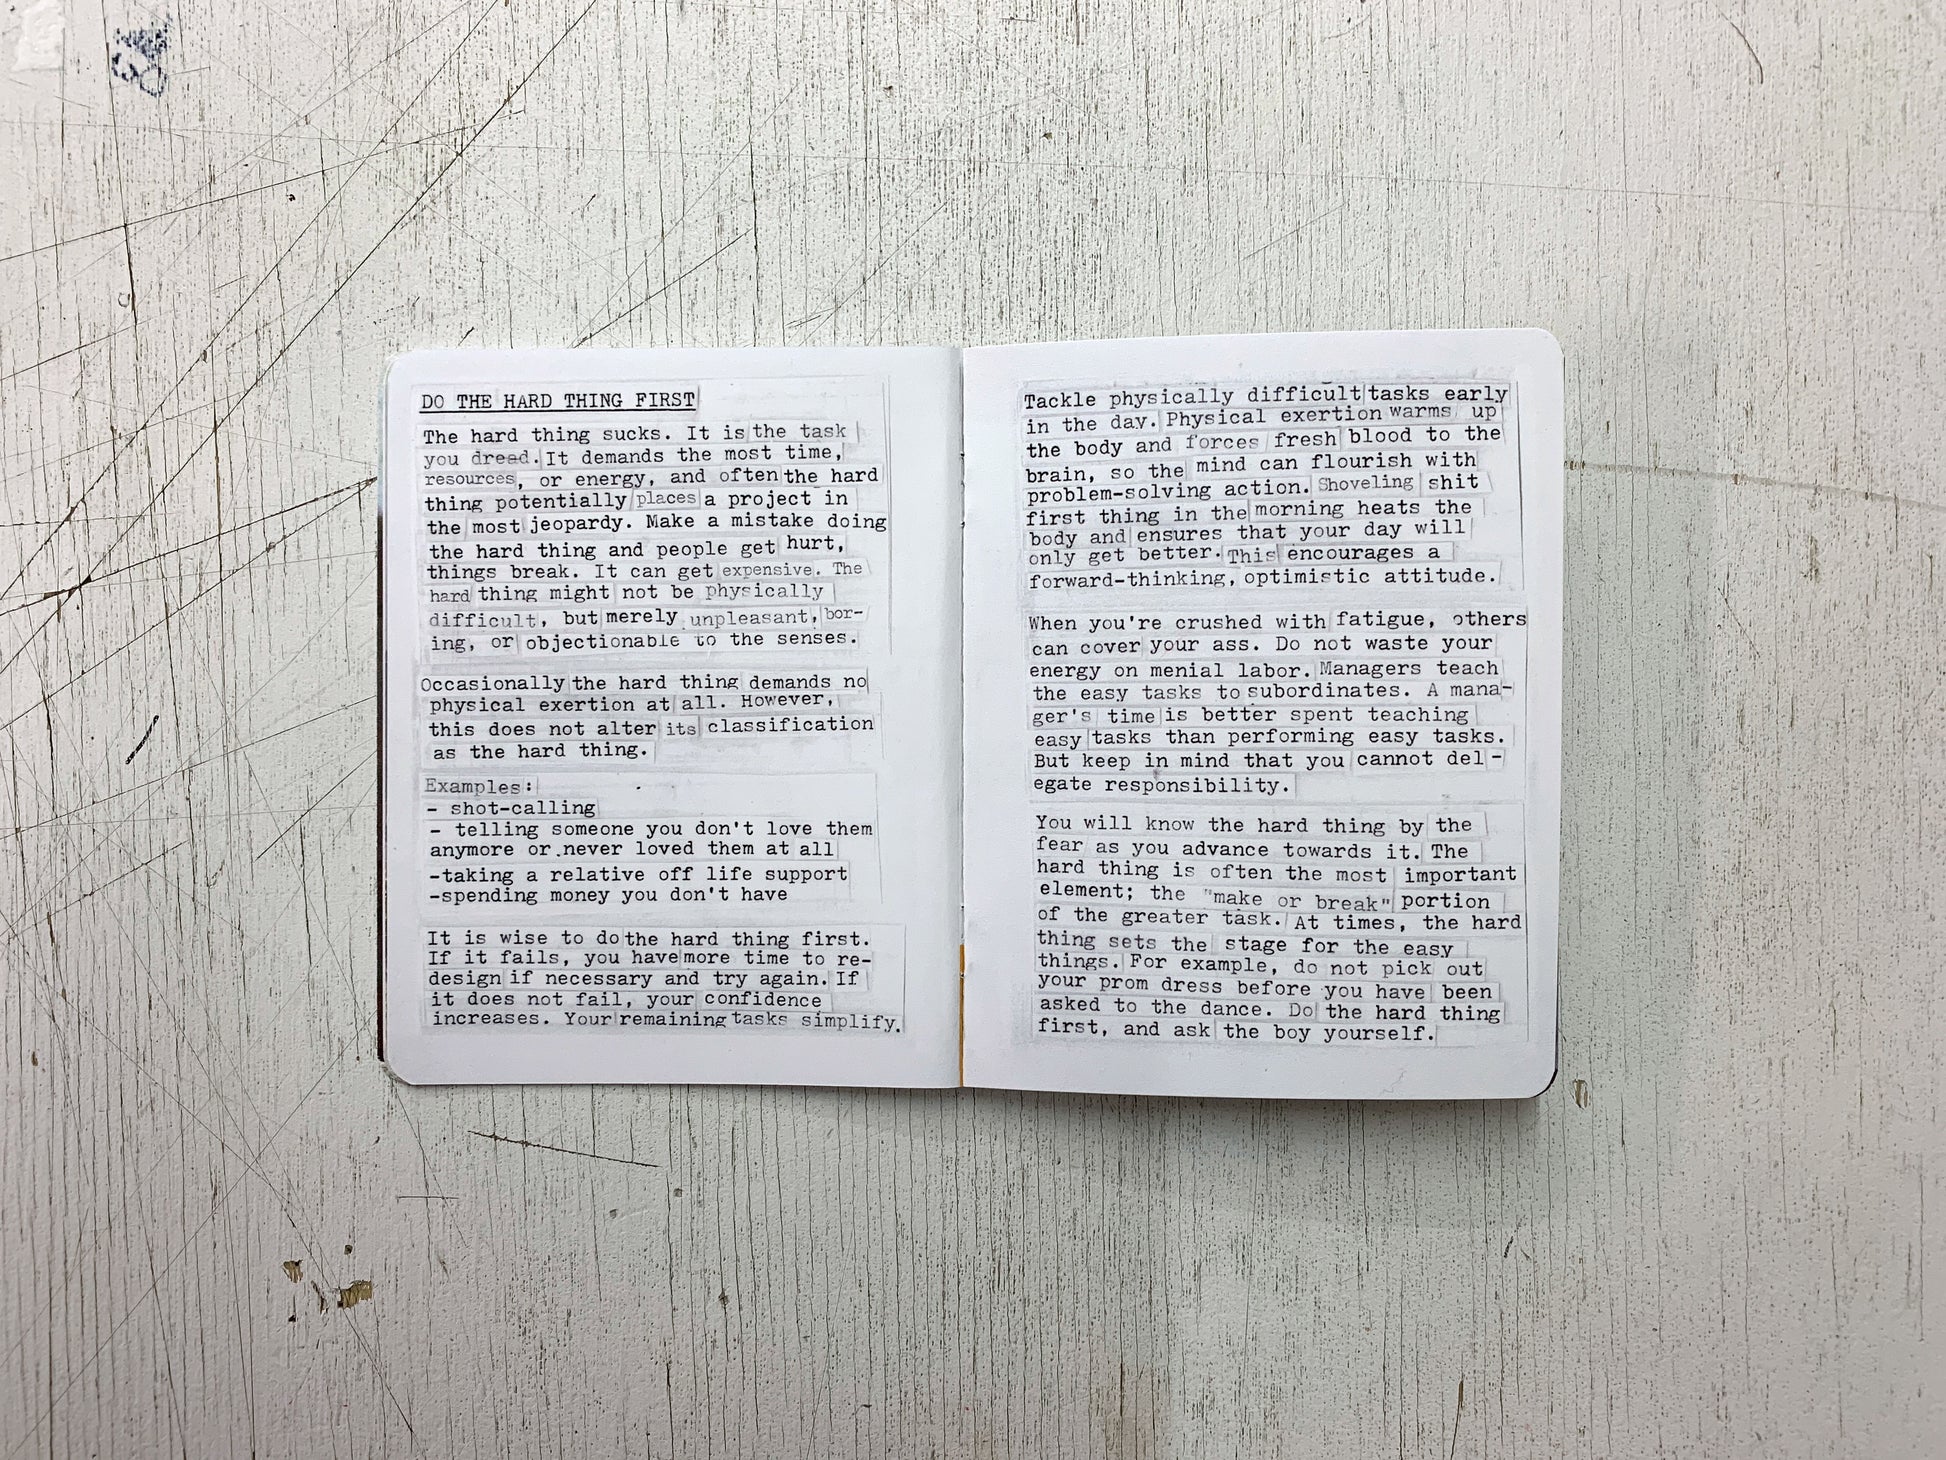 DO THE HARD THING FIRST
The hard thing sucks. It is the task
you dread. It demands the most time,
resources, or energy, and often the hard
thing potentially places a project in
the most jeopardy. Make a mistake doing
the hard thing and people get hurt,
things break. It can get expensive. The
hard thing might not be physically
difficult, but merely unpleasant, bor-
ing, or objectionable to the senses.
Occasionally the hard thing demands no
physical exertion at all. However,
this does not alter its classification
as the hard thing.
Examples:
- shot-calling
- telling someone you don't love them
anymore or never loved them at all
-taking a relative off life support
-spending money you don't have
It is wise to do the hard thing first.
If it fails, you have more time to re-
design if necessary and try again. If
it does not fail, your confidence
increases. Your remaining tasks simplify.
Tackle physically difficult tasks early
in the day. Physical exertion warms up
the body and forces fresh blood to the
brain, so the mind can flourish with
problem-solving action. Shoveling shit
first thing in the morning heats the
body and ensures that your day will
only get better. This encourages a
forward-thinking, optimistic attitude.
When you're crushed with fatigue, others
can cover your ass. Do not waste your
energy on menial labor. Managers teach
the easy tasks to subordinates. A mana-
ger's time is better spent teaching
easy tasks than performing easy tasks.
But keep in mind that you cannot del-
egate responsibility.
You will know the hard thing by the
fear as you advance towards it. The
hard thing is often the most important
element; the "make or break" portion
of the greater task. At times, the hard
thing sets the stage for the easy
things. For example, do not pick out
your prom dress before you have been
asked to the dance. Do the hard thing
first, and ask the boy yourself.